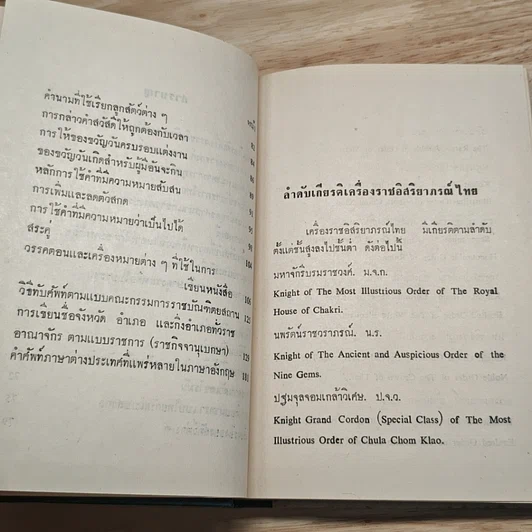 คำนามที่ใช้เรียกลูกสัตว์ต่าง ๆ
การกล่าวคำสวัสดีให้ถูกต้องกับเวลา
การให้ของขวัญวันครบรอบแต่งงาน
ของขวัญวันเกิดสำหรับผู้มีอันจะกิน
หลักการใช้คำที่มีความหมายสับสน
การเพิ่มและลดตัวสกด
การใช้คำที่มีความหมายว่าเป็นไปได้
สระคู่
วรรคตอนและเครื่องหมายต่าง ๆ ที่ใช้ในการ
เขียนหนังสือ 104
วิธีทับศัพท์ตามแบบคณะกรรมการราชบัณฑิตยสถาน
การเขียนชื่อจังหวัด อำเภอ และกิ่งอำเภอทั่วราช
อาณาจักร ตามแบบราชการ (ราชกิจจานุเบกษา)
คำศัพท์ภาษาต่างประเทศที่แพร่หลายในภาษาอังกฤษ
ลำดับเกียรติเครื่องราชอิสริยาภรณ์ไทย
เครื่องราชอิสริยาภรณ์ไทย มีเกียรติตามลำดับ
ตั้งแต่ชั้นสูงลงไปชั้นต่ำ ดังต่อไปนี้
มหาจักรีบรมราชวงศ์. ม.จ.ก.
Knight of The Most Illustrious Order of The Royal
House of Chakri.
นพรัตน์ราชวราภรณ์. น.ร.
Knight of The Ancient and Auspicious Order of the
Nine Gems.
ปฐมจุลจอมเกล้าวิเศษ. ป.จ.ว.
Knight Grand Cordon (Special Class) of The Most
Illustrious Order of Chula Chom Klao.